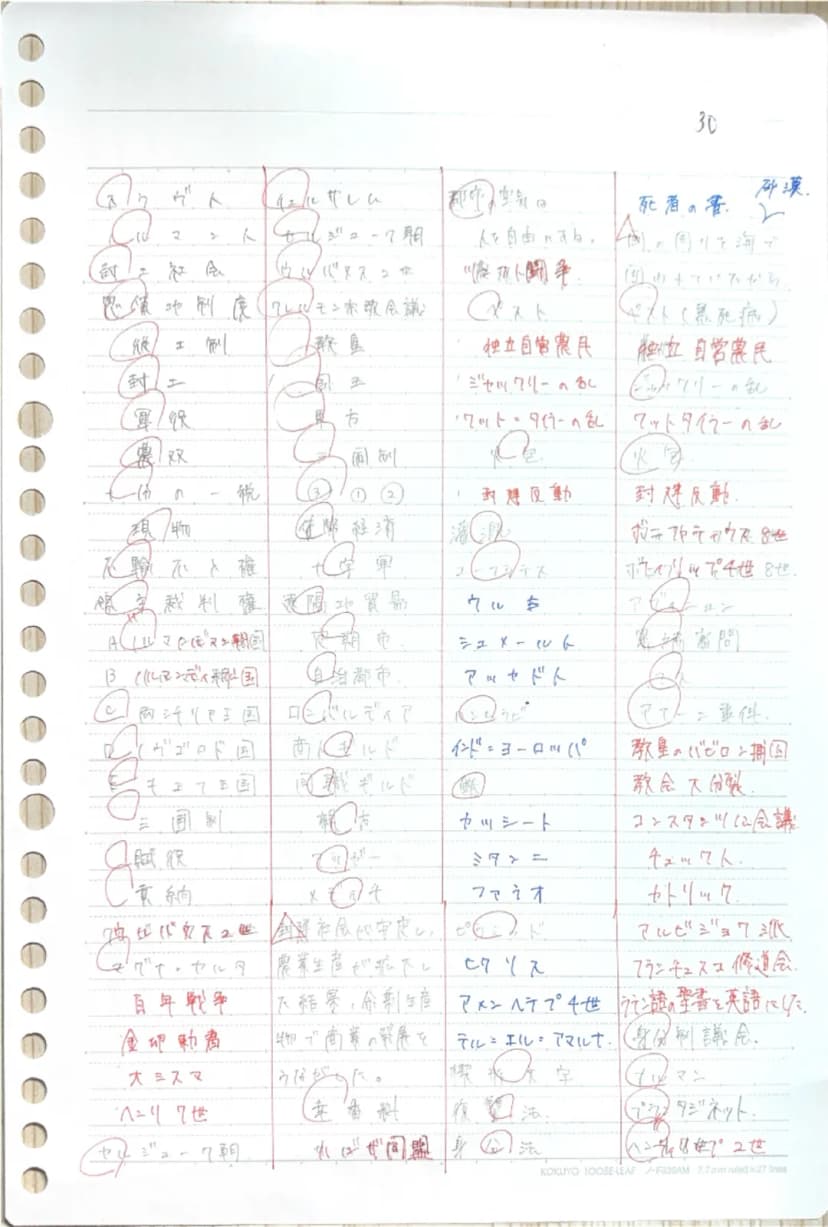 30
スラヴ人
ノルマン人
封土社会
恩貸地制度
従士制
封土
賦役
農奴
十分の一税
現物
不輸不入権
領主裁判権
A ノルマンディ公国
B
C 両シチリア王国
D ノヴゴロド国
E キエフ公国
三圃制
賦役
貢納
ウルバヌス2世
マグナ・カルタ
百年戦争
金印勅書
大シスマ
ヘンリ7世
セルジューク朝
エルサレム
セルジューク朝
ウルバヌス2世
クレルモン宗教会議
教皇
国王
東方
三圃制
③ ① ②
貨幣経済
十字軍
遠隔地貿易
定期市
自治都市
ロンバルディア
商人ギルド
同職ギルド
親方
フッガー
メディチ
封建社会が安定し、
農業生産が拡大し
た結果、余剰生産
物で商業の発展を
うながした。
三圃制
ハンザ同盟
都市の空気は
人を自由にする。
ツンフト闘争
ペスト
独立自営農民
ジャックリーの乱
ワット・タイラーの乱
火砲
封建反動
藩派
コーランテス
ウル市
シュメール人
アッカド人
ハンムラビ
インド=ヨーロッパ
鉄
カッシート
ミタンニ
ファラオ
ピラミッド
ヒクソス
アメンヘテプ4世
テル=エル=アマルナ
楔形文字
復讐法
身分法
死者の書. 砂漠.
国の周りを海で
囲われていたから
ペスト(黒死病)
独立自営農民
ジャックリーの乱
ワットタイラーの乱
火砲
封建反動.
ボニファティウス8世
フィリップ4世
アヴィニョン
異端審問
アナーニ事件.
教皇のバビロン捕囚
教会大分裂.
コンスタンツ公会議
チェック人.
カトリック.
アルビジョワ派
フランチェスコ修道会.
ラテン語の聖書を英語にした.
身分制議会.
ノルマン
プランタジネット.
ヘンリ2世
KOKUYO LOOSE-LEAF ノ-F839AM 7.7 mm ruled×27 lines